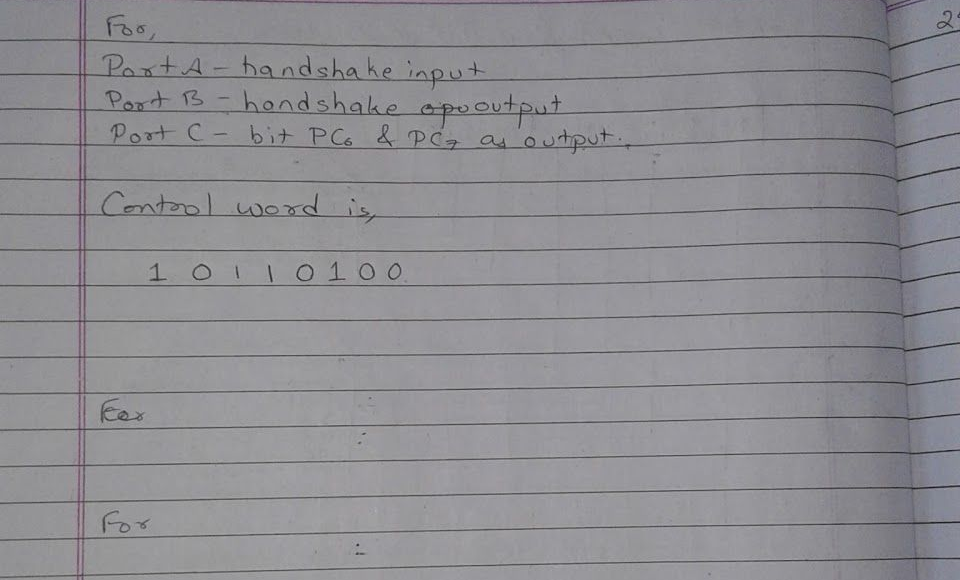 For,
Port A - handshake input
Port B - handshake output
Port C - bit PC6 & PC7 as output.
Control word is,
1 0 1 1 0 1 0 0
For
For